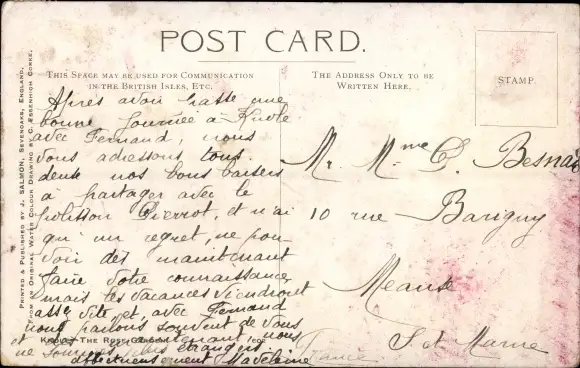 POST CARD.
THIS SPACE MAY BE USED FOR COMMUNICATION
IN THE BRITISH ISLES, ETC.
THE ADDRESS ONLY TO BE
WRITTEN HERE.
STAMP.
PRINTED & PUBLISHED BY J. SALMON, SEVENOAKS, ENGLAND,
FROM AN ORIGINAL WATER COLOUR DRAWING BY C. ESSENHIGH CORKE.
Après avoir passé une
bonne journée à Knole
avec Fernand, nous
vous adressons tous
deux nos bons baisers
à partager avec le
polisson Pierrot, et n'ai
qu'un regret, ne pou-
voir dès maintenant
faire votre connaissance,
mais les vacances viendront
assez vite et, avec Fernand
nous parlons souvent de vous
maintenant nous
ne sommes plus étrangers.
affectueusement Madeleine
KNOLE THE ROSE GARDEN
Mr. Mme Besnar
10 rue Barigny
Meaux
S et Marne
France